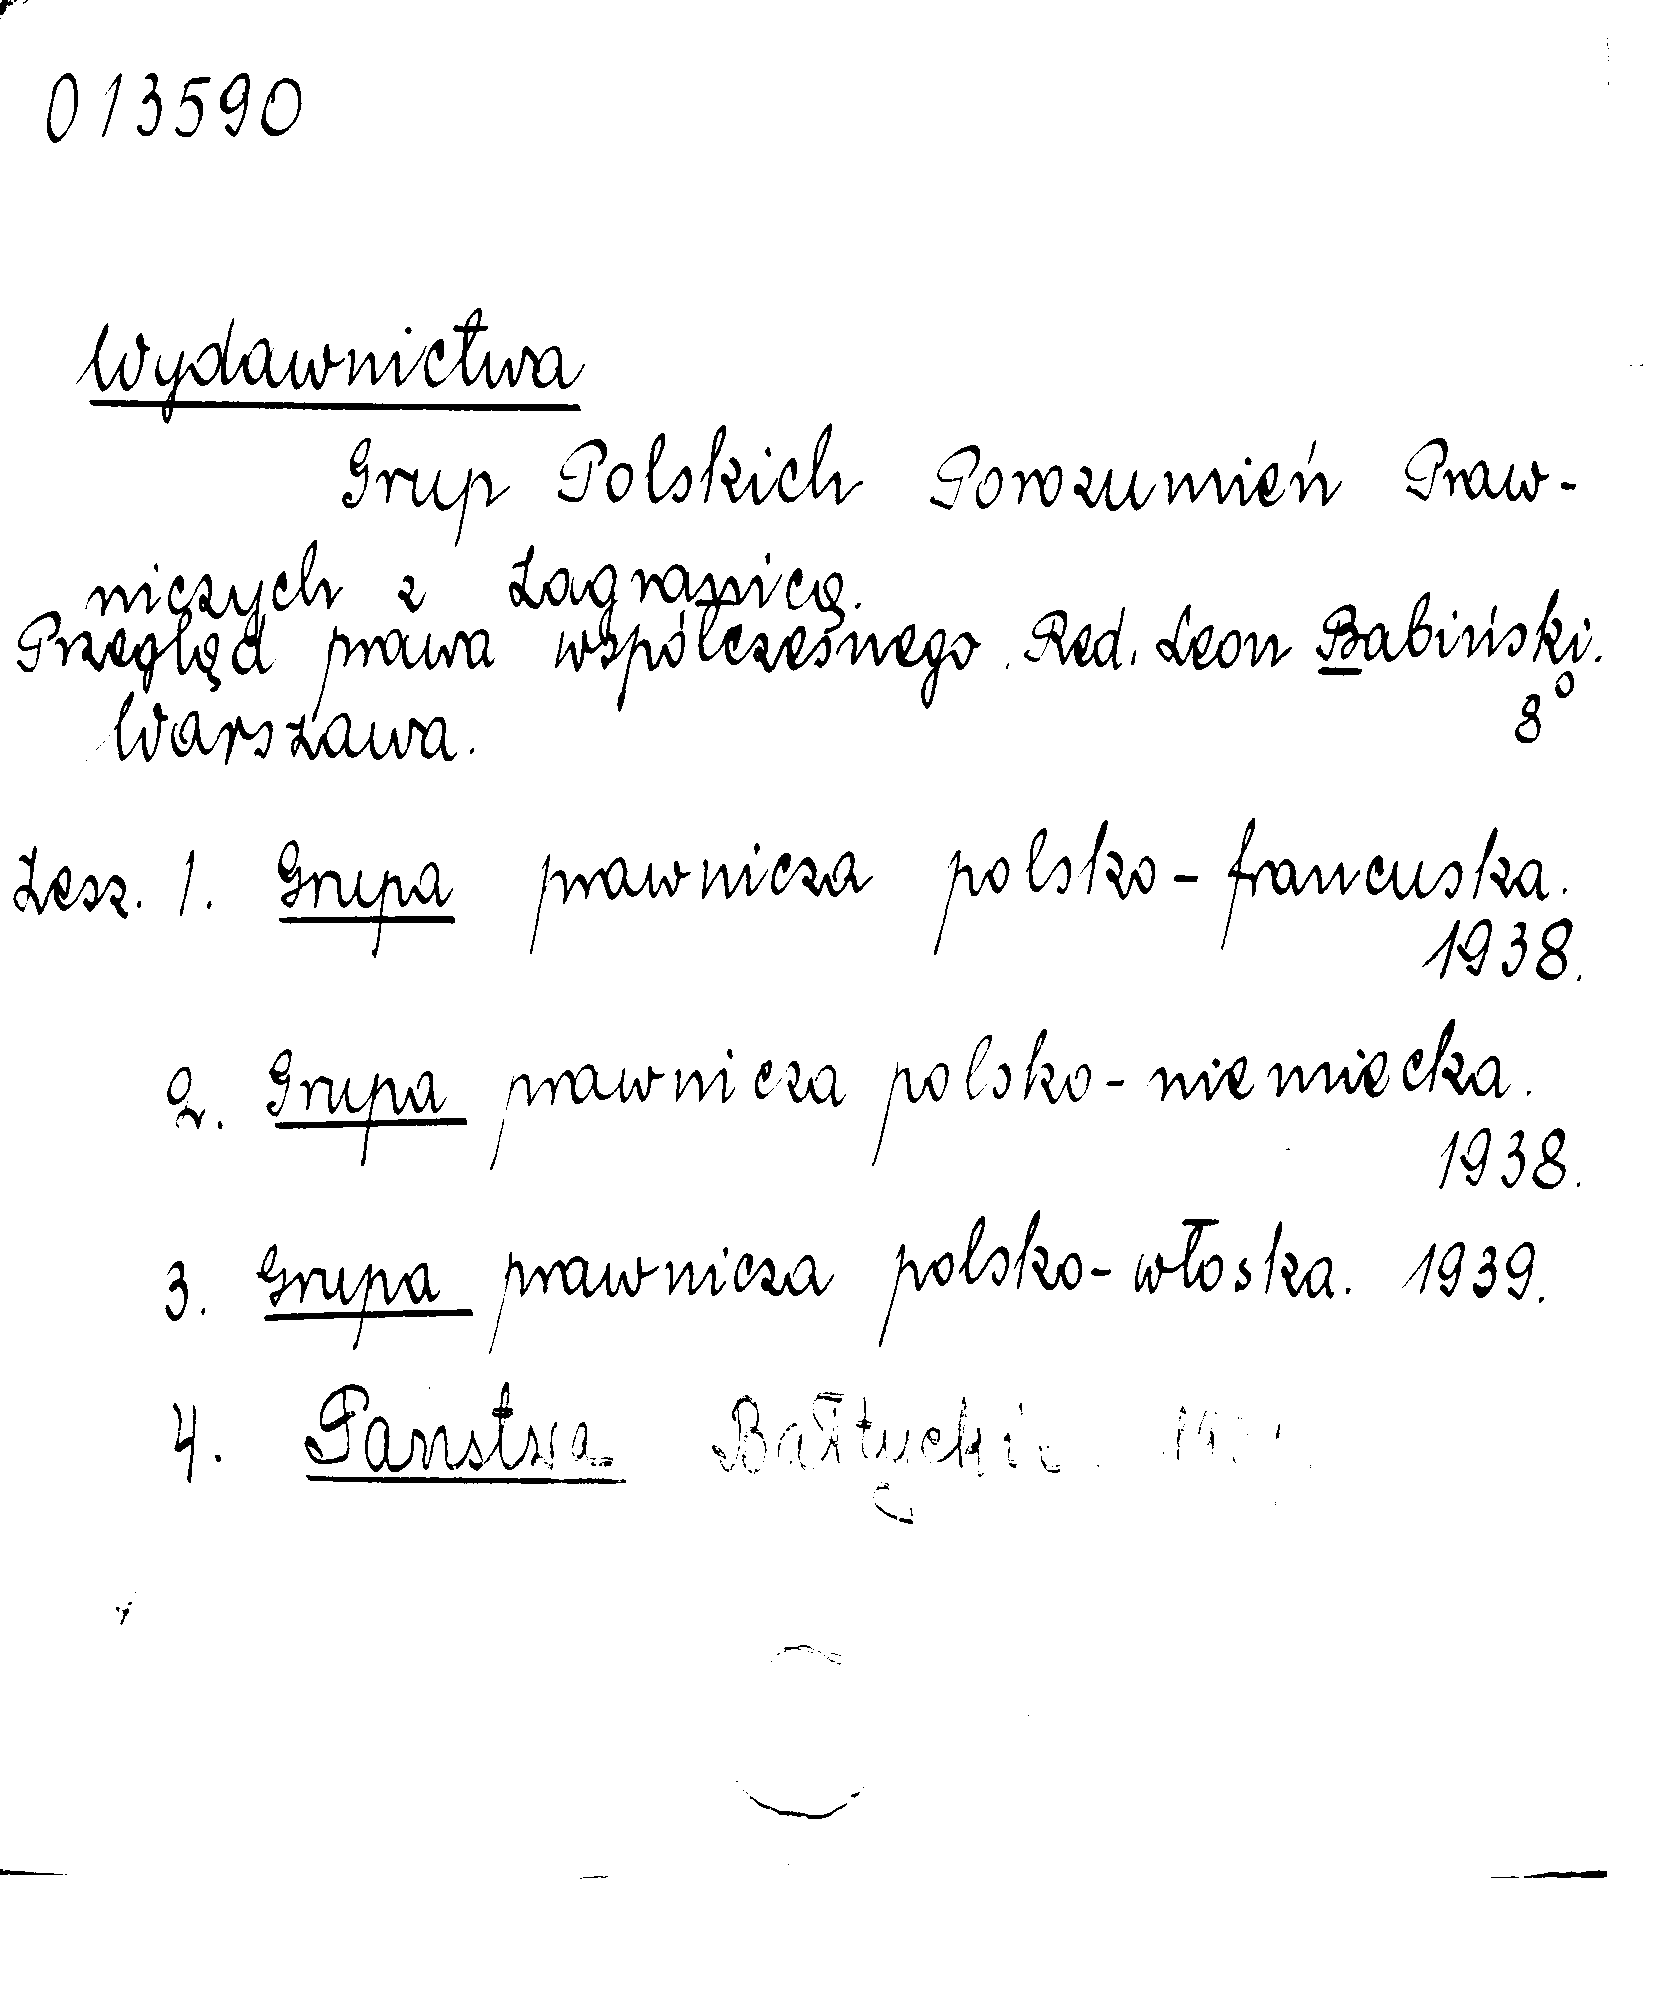 013590
Wydawnictwa
Grup Polskich Porozumień Praw-
niczych z Zagranicą.
Przegląd prawa współczesnego. Red. Leon Babiński.
Warszawa. 8°
Zesz. 1. Grupa prawnicza polsko-francuska.
1938.
2. Grupa prawnicza polsko-niemiecka.
1938.
3. Grupa prawnicza polsko-włoska. 1939.
4. Państwa Bałtyckie.